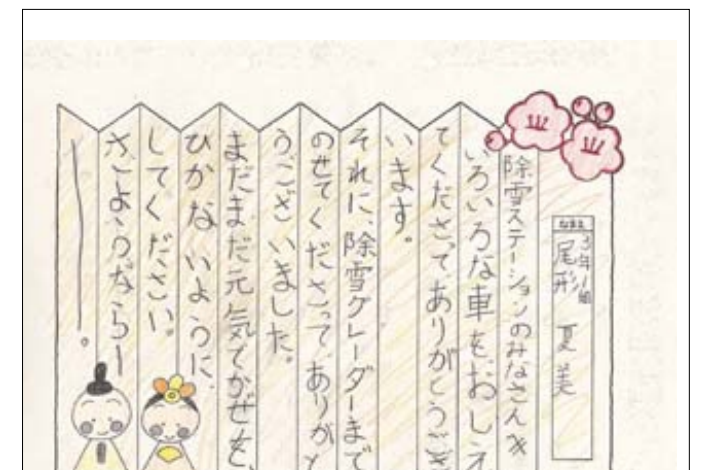 なまえ
3年1組
尾形 夏美
除雪ステーションのみなさんへ
いろいろな車をおしえ
てくださってありがとうござ
います。
それに、除雪グレーダーまで
のせてくださって、ありがと
うございました。
まだまだ元気でかぜを、
ひかないように、
してください。
さようなら〜
。